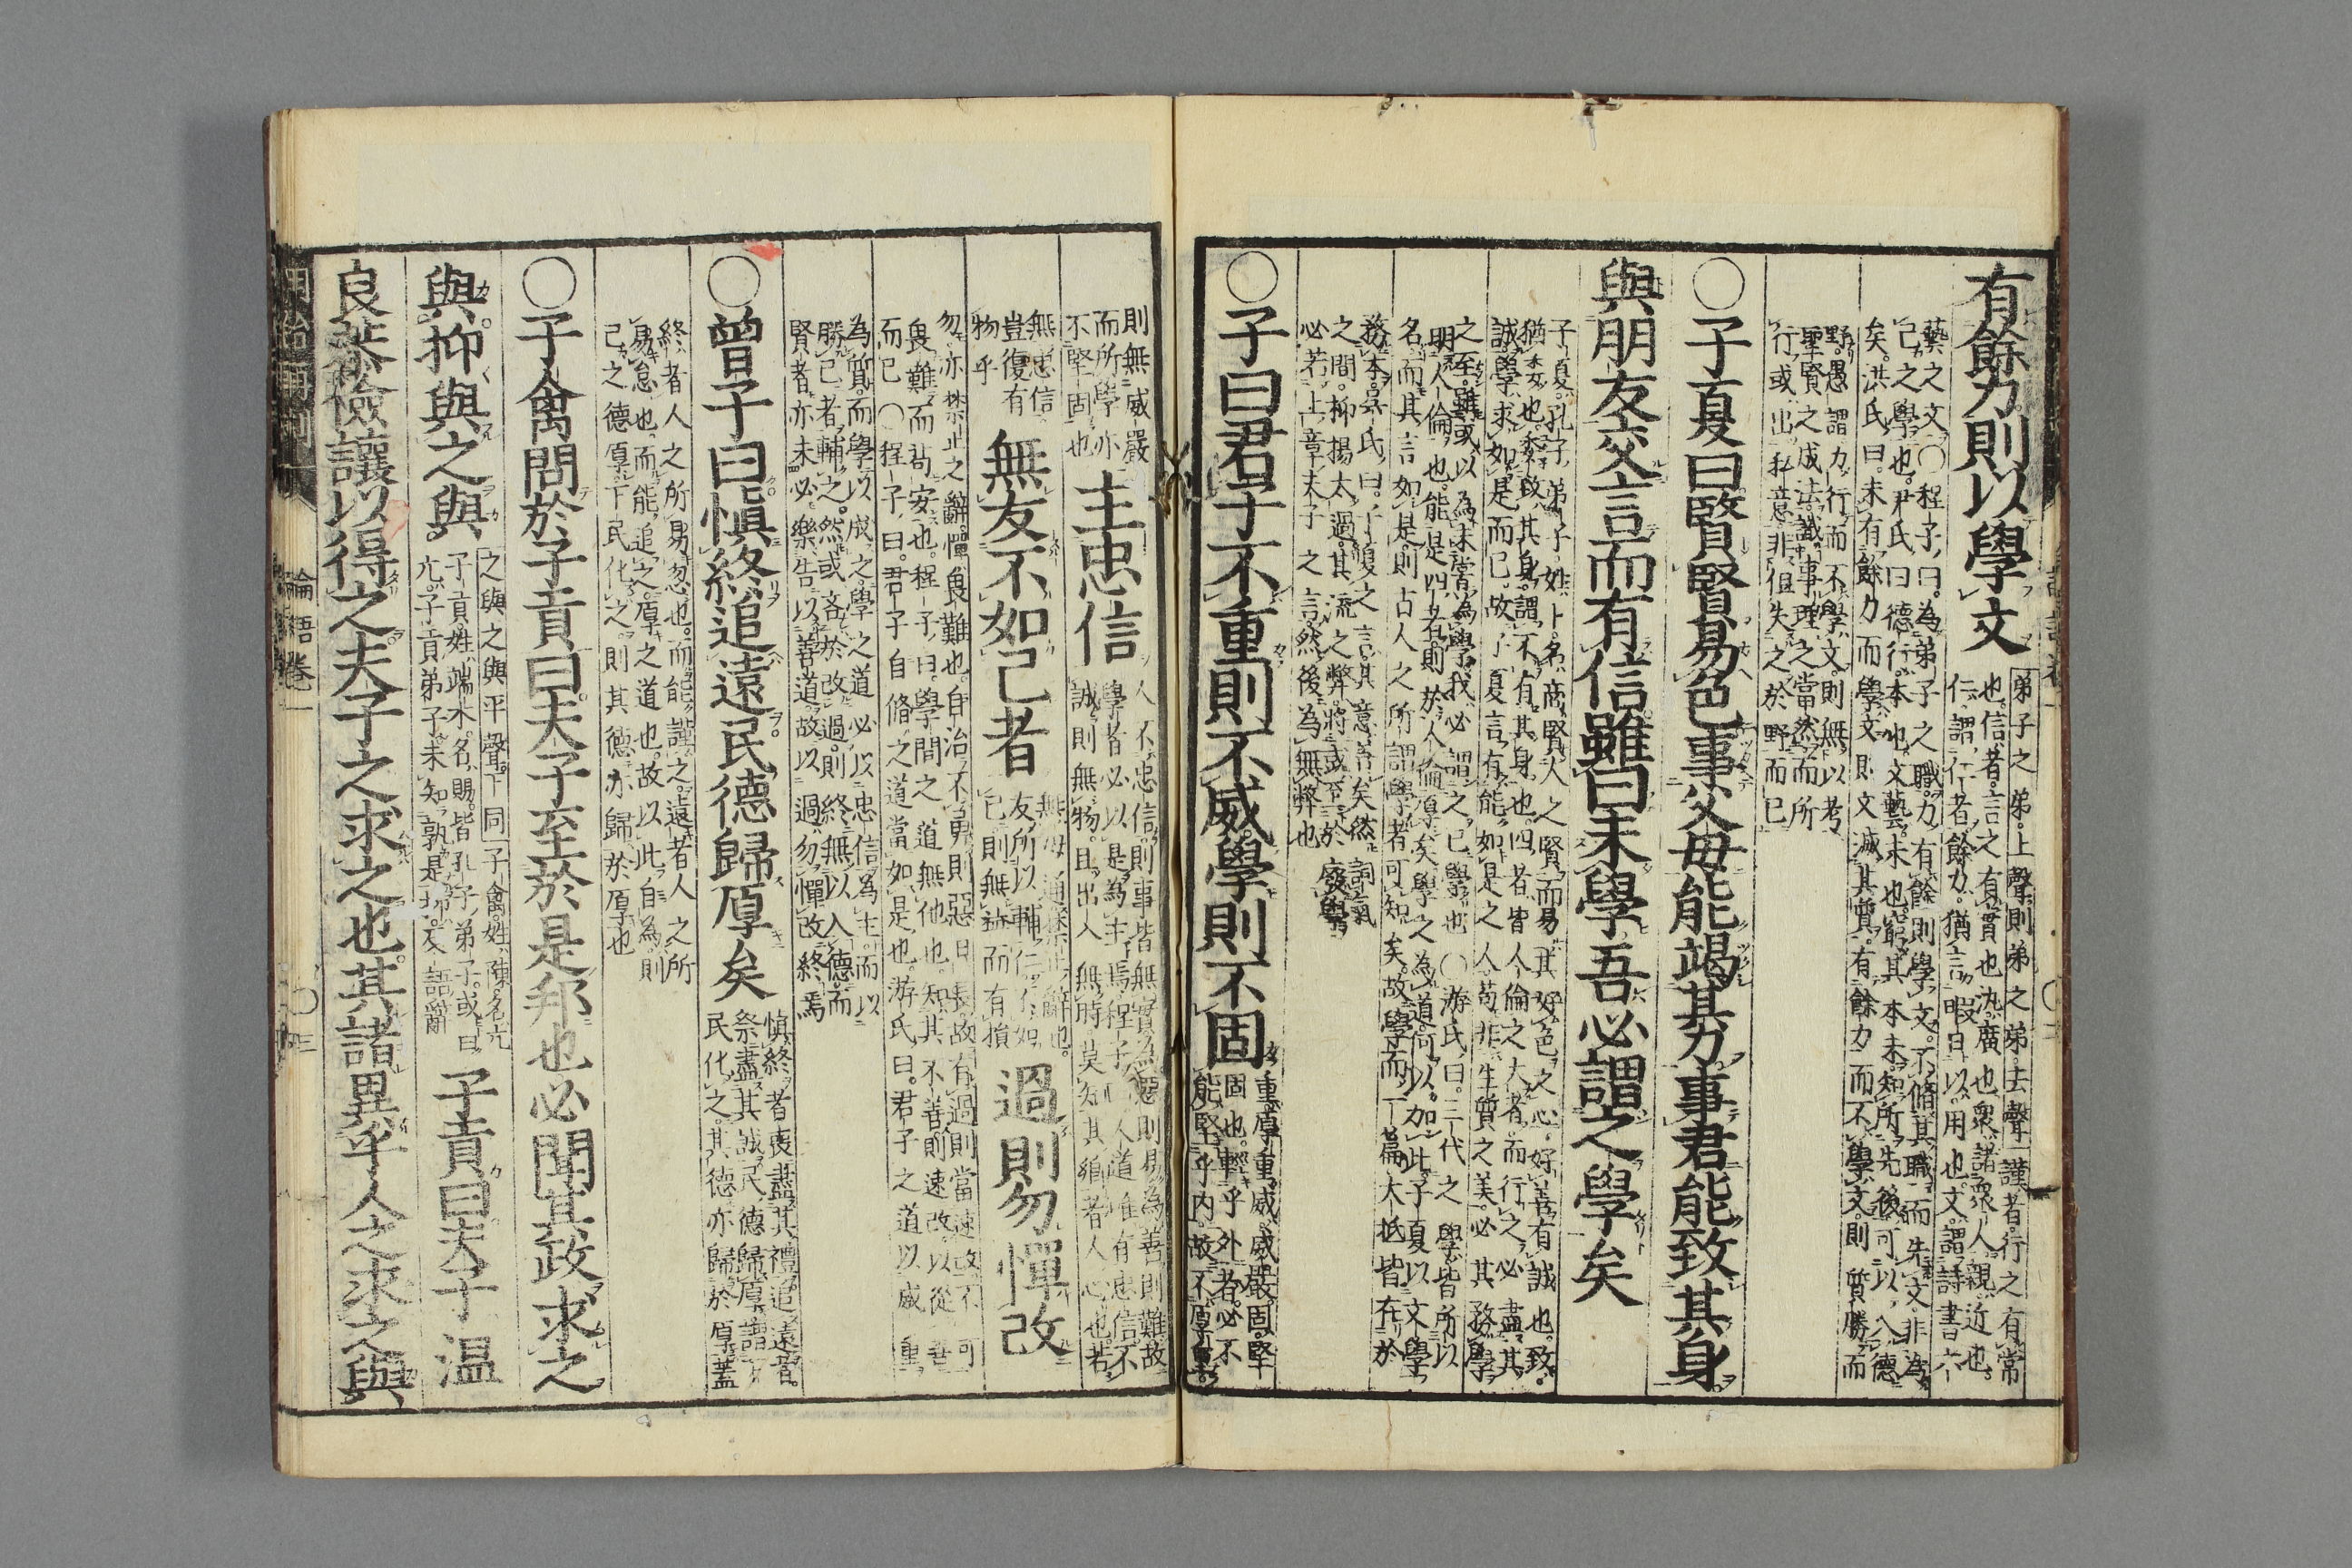 有餘力則以學文
弟子之弟上聲則弟之弟去聲謹者行之有常
也信者言之有實也汎廣也衆謂衆人親近也
仁謂仁者餘力猶言暇日以用也文謂詩書六
藝之文○程子曰為弟子之職力有餘則學文不脩其職而先文非為
己之學也尹氏曰德行本也文藝末也窮其本末知所先後可以入德
矣洪氏曰未有餘力而學文則文滅其質有餘力而不學文則質勝而
野愚謂力行而不學文則無以考
聖賢之成法識事理之當然而所
行或出私意非但失之於野而已
○子夏曰賢賢易色事父母能竭其力事君能致其身
與朋友交言而有信雖曰未學吾必謂之學矣
子夏孔子弟子姓卜名商賢人之賢而易其好色之心好善有誠也致
猶委也委致其身謂不有其身也四者皆人倫之大者而行之必盡其
誠學求如是而已故子夏言有能如是之人苟非生質之美必其務學
之至雖或以為未嘗為學我必謂之已學也○游氏曰三代之學皆所以
明人倫也能是四者則於人倫厚矣學之為道何以加此子夏以文學
名而其言如是則古人之所謂學者可知矣故學而一篇大抵皆在於
務本吳氏曰子夏之言其意善矣然詞氣
之間抑揚太過其流之弊將或至於廢學
必若上章夫子之言然後為無弊也
○子曰君子不重則不威學則不固
重厚重威威嚴固堅
固也輕乎外者必不
能堅乎内故不厚重
則無威嚴
而所學亦
不堅固也
主忠信
人不忠信則事皆無實為惡則易為善則難故
學者必以是為主焉程子曰人道惟在忠信不
誠則無物且出入無時莫知其鄉者人心也若
無忠信
豈復有
物乎
無友不如己者
無毋通禁止辭也
友所以輔仁不如
己則無益而有損
過則勿憚改
勿亦禁止之辭憚畏難也自治不勇則惡日長故有過則當速改不可
畏難而苟安也程子曰學問之道無他也知其不善則速改以從善
而已○程子曰君子自脩之道當如是也游氏曰君子之道以威重
為質而學以成之學之道必以忠信為主而以
勝己者輔之然或吝於改過則終無以入德而
賢者亦未必樂告以善道故以過勿憚改終焉
○曾子曰慎終追遠民德歸厚矣
慎終者喪盡其禮追遠者
祭盡其誠民德歸厚謂下
民化之其德亦歸於厚蓋
終者人之所易忽也而能謹之遠者人之所
易怠也而能追之厚之道也故以此自為則
己之德厚下民化之則其德亦歸於厚也
○子禽問於子貢曰夫子至於是邦也必聞其政求之
與抑與之與
之與之與平聲下同子禽姓陳名亢
子貢姓端木名賜皆孔子弟子或曰
亢子貢弟子未知孰是抑反語辭
子貢曰夫子溫
良恭儉讓以得之夫子之求之也其諸異乎人之求之與
論語卷一